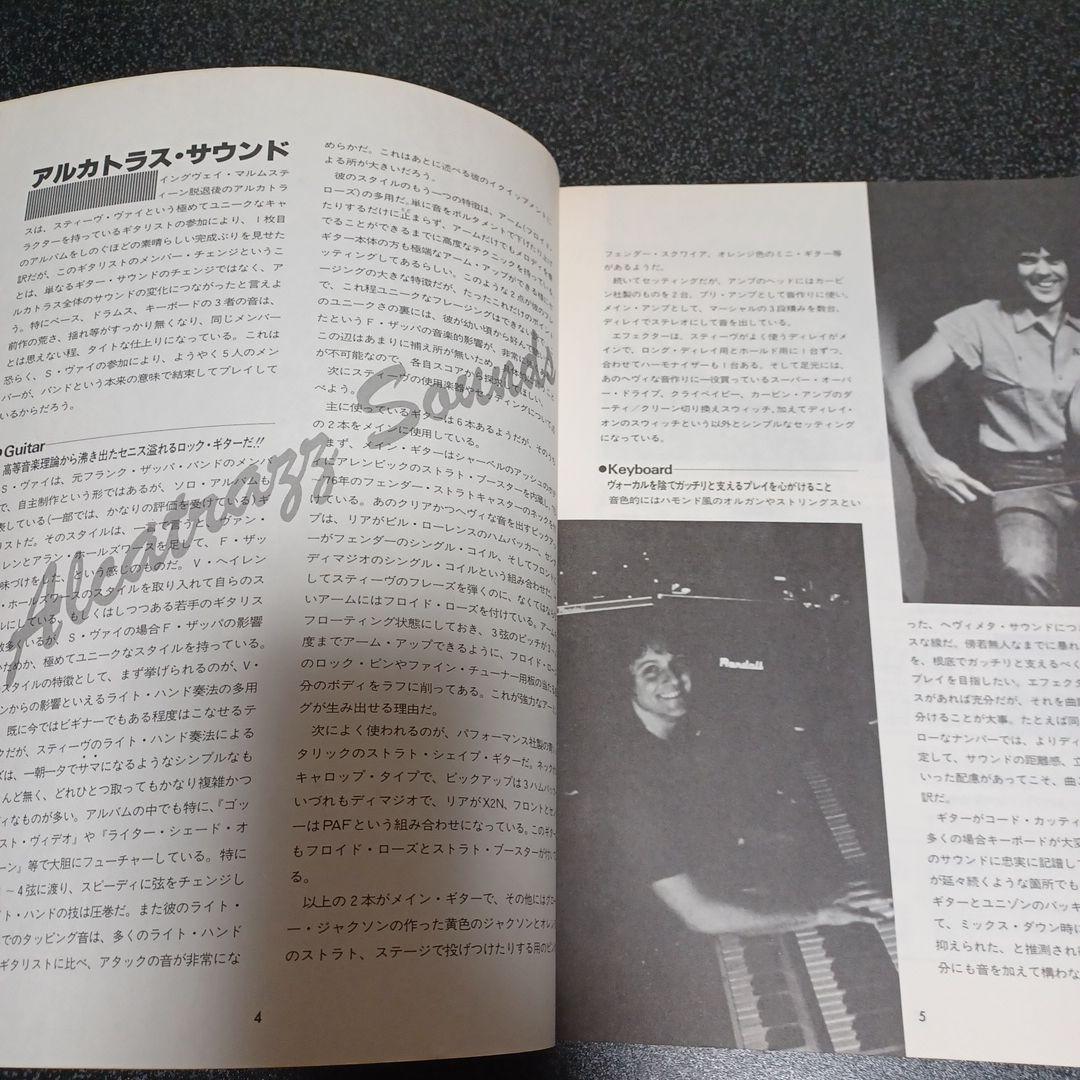 アルカトラス・サウンド
イングヴェイ・マルムスティ
ーン脱退後のアルカトラ
スは、スティーヴ・ヴァイという極めてユニークなキャ
ラクターを持っているギタリストの参加により、1枚目
のアルバムをしのぐほどの素晴らしい完成ぶりを見せた
訳だが、このギタリストのメンバー・チェンジというこ
とは、単なるギター・サウンドのチェンジではなく、ア
ルカトラス全体のサウンドの変化につながったと言えよ
う。特にベース、ドラムス、キーボードの3者の音は、
前作の荒さ、揺れ等がすっかり無くなり、同じメンバー
とは思えない程、タイトな仕上りになっている。これは
恐らく、S・ヴァイの参加により、ようやく5人のメン
バーが、バンドという本来の意味で結束してプレイして
いるからだろう。
Guitar
高等音楽理論から沸き出たセニス溢れるロック・ギターだ!!
S・ヴァイは、元フランク・ザッパ・バンドのメンバ
で、自主制作という形ではあるが、ソロ・アルバムも
表している(一部では、かなりの評価を受けている)ギ
リストだ。そのスタイルは、一言で言うと、ヴァン・
レンとアラン・ホールズワースを足して、F・ザッ
味づけをした、という感じのものだ。V・ヘイレン
・ホールズワースのスタイルを取り入れて自らのス
ルにしている、もしくはしつつある若手のギタリス
数多くいるが、S・ヴァイの場合F・ザッパの影響
ためか、極めてユニークなスタイルを持っている。
スタイルの特徴として、まず挙げられるのが、V・
ンからの影響といえるライト・ハンド奏法の多用
既に今ではビギナーでもある程度はこなせるテ
クだが、スティーヴのライト・ハンド奏法による
ズは、一朝一夕でサマになるようなシンプルなも
んど無く、どれひとつ取ってもかなり複雑かつ
ィなものが多い。アルバムの中でも特に、『ゴッ
スト・ヴィデオ』や『ライター・シェード・オ
ーン』等で大胆にフューチャーしている。特に
～4弦に渡り、スピーディに弦をチェンジし
イト・ハンドの技は圧巻だ。また彼のライト・
でのタッピング音は、多くのライト・ハンド
ギタリストに比べ、アタックの音が非常にな
めらかだ。これはあとに述べる彼のイクイップメントに
よる所が大きいだろう。
彼のスタイルのもう一つの特徴は、アーム(フロイド・
ローズ)の多用だ。単に音をポルタメントで下げたり上げ
たりするだけに止まらず、アームだけでもメロディを奏
でることができるまでに高度なテクニックを持っている
ギター本体の方も極端なアーム・アップができる様にセ
ッティングしてあるらしい。このような2点が彼のフレ
ージングの大きな特徴だが、たったこれだけのポイント
で、これ程ユニークなフレージングはできない
のユニークさの裏には、彼が幼い頃から好んで
たというF・ザッパの音楽的影響が、非常に
この辺はあまりに補え所が無いため、具体的
が不可能なので、各自スコアから探求してほしい。
次にスティーヴの使用楽器やセッティングについて述
べよう。
主に使っているギターは6本あるようだが、そのうち
の2本をメインに使用している。
まず、メイン・ギターはシャーベルのアッシュのボデ
ィにアレンビックのストラト・ブースターを内蔵し、
'76年のフェンダー・ストラトキャスターのネックを
けている。あのクリアかつヘヴィな音を出すピックア
プは、リアがビル・ローレンスのハムバッカー、セン
ーがフェンダーのシングル・コイル、そしてフロント
ディマジオのシングル・コイルという組み合わせだ。
してスティーヴのフレーズを弾くのに、なくてはなら
いアームにはフロイド・ローズを付けている。アーム
フローティング状態にしておき、3弦のピッチが
度までアーム・アップできるように、フロイド・ロー
のロック・ピンやファイン・チューナー用板の当たる
分のボディをラフに削ってある。これが強力なアー
グが生み出せる理由だ。
次によく使われるのが、パフォーマンス社製の青
タリックのストラト・シェイプ・ギターだ。ネックは
キャロップ・タイプで、ピックアップは3ハムバッ
いづれもディマジオで、リアがX2N、フロントとセン
ーはPAFという組み合わせになっている。このギ
もフロイド・ローズとストラト・ブースターが付い
る。
以上の2本がメイン・ギターで、その他にはグロー
ー・ジャクソンの作った黄色のジャクソンとオレン
のストラト、ステージで投げつけたりする用のピン
Alcatrazz Sounds
4
フェンダー・スクワイア、オレンジ色のミニ・ギター等
があるようだ。
続いてセッティングだが、アンプのヘッドにはカービ
ン社製のものを2台。プリ・アンプとして音作りに使い、
メイン・アンプとして、マーシャルの3段積みを数台、
ディレイでステレオにして音を出している。
エフェクターは、スティーヴがよく使うディレイがメ
インで、ロング・ディレイ用とホールド用に1台ずつ、
合わせてハーモナイザーも1台ある。そして足元には、
あのヘヴィな音作りに一役買っているスーパー・オーバ
ー・ドライブ、クライベイビー、カービン・アンプのダ
ーティ/クリーン切り換えスウィッチ、加えてディレイ・
オンのスウィッチという以外とシンプルなセッティング
になっている。
●Keyboard
ヴォーカルを陰でガッチリと支えるプレイを心がけること
音色的にはハモンド風のオルガンやストリングスとい
Randall
った、ヘヴィメタ・サウンドにつ
スな線だ。傍若無人なまでに暴れ
を、根底でガッチリと支えるべく
プレイを目指したい。エフェクタ
スがあれば充分だが、それを曲
分けることが大事。たとえば同
ローなナンバーでは、よりディ
定して、サウンドの距離感、立
いった配慮があってこそ、曲
訳だ。
ギターがコード・カッティ
多くの場合キーボードが大変
のサウンドに忠実に記譜し
が延々続くような箇所でも
ギターとユニゾンのバッキ
て、ミックス・ダウン時に
抑えられた、と推測され
分にも音を加えて構わな
5